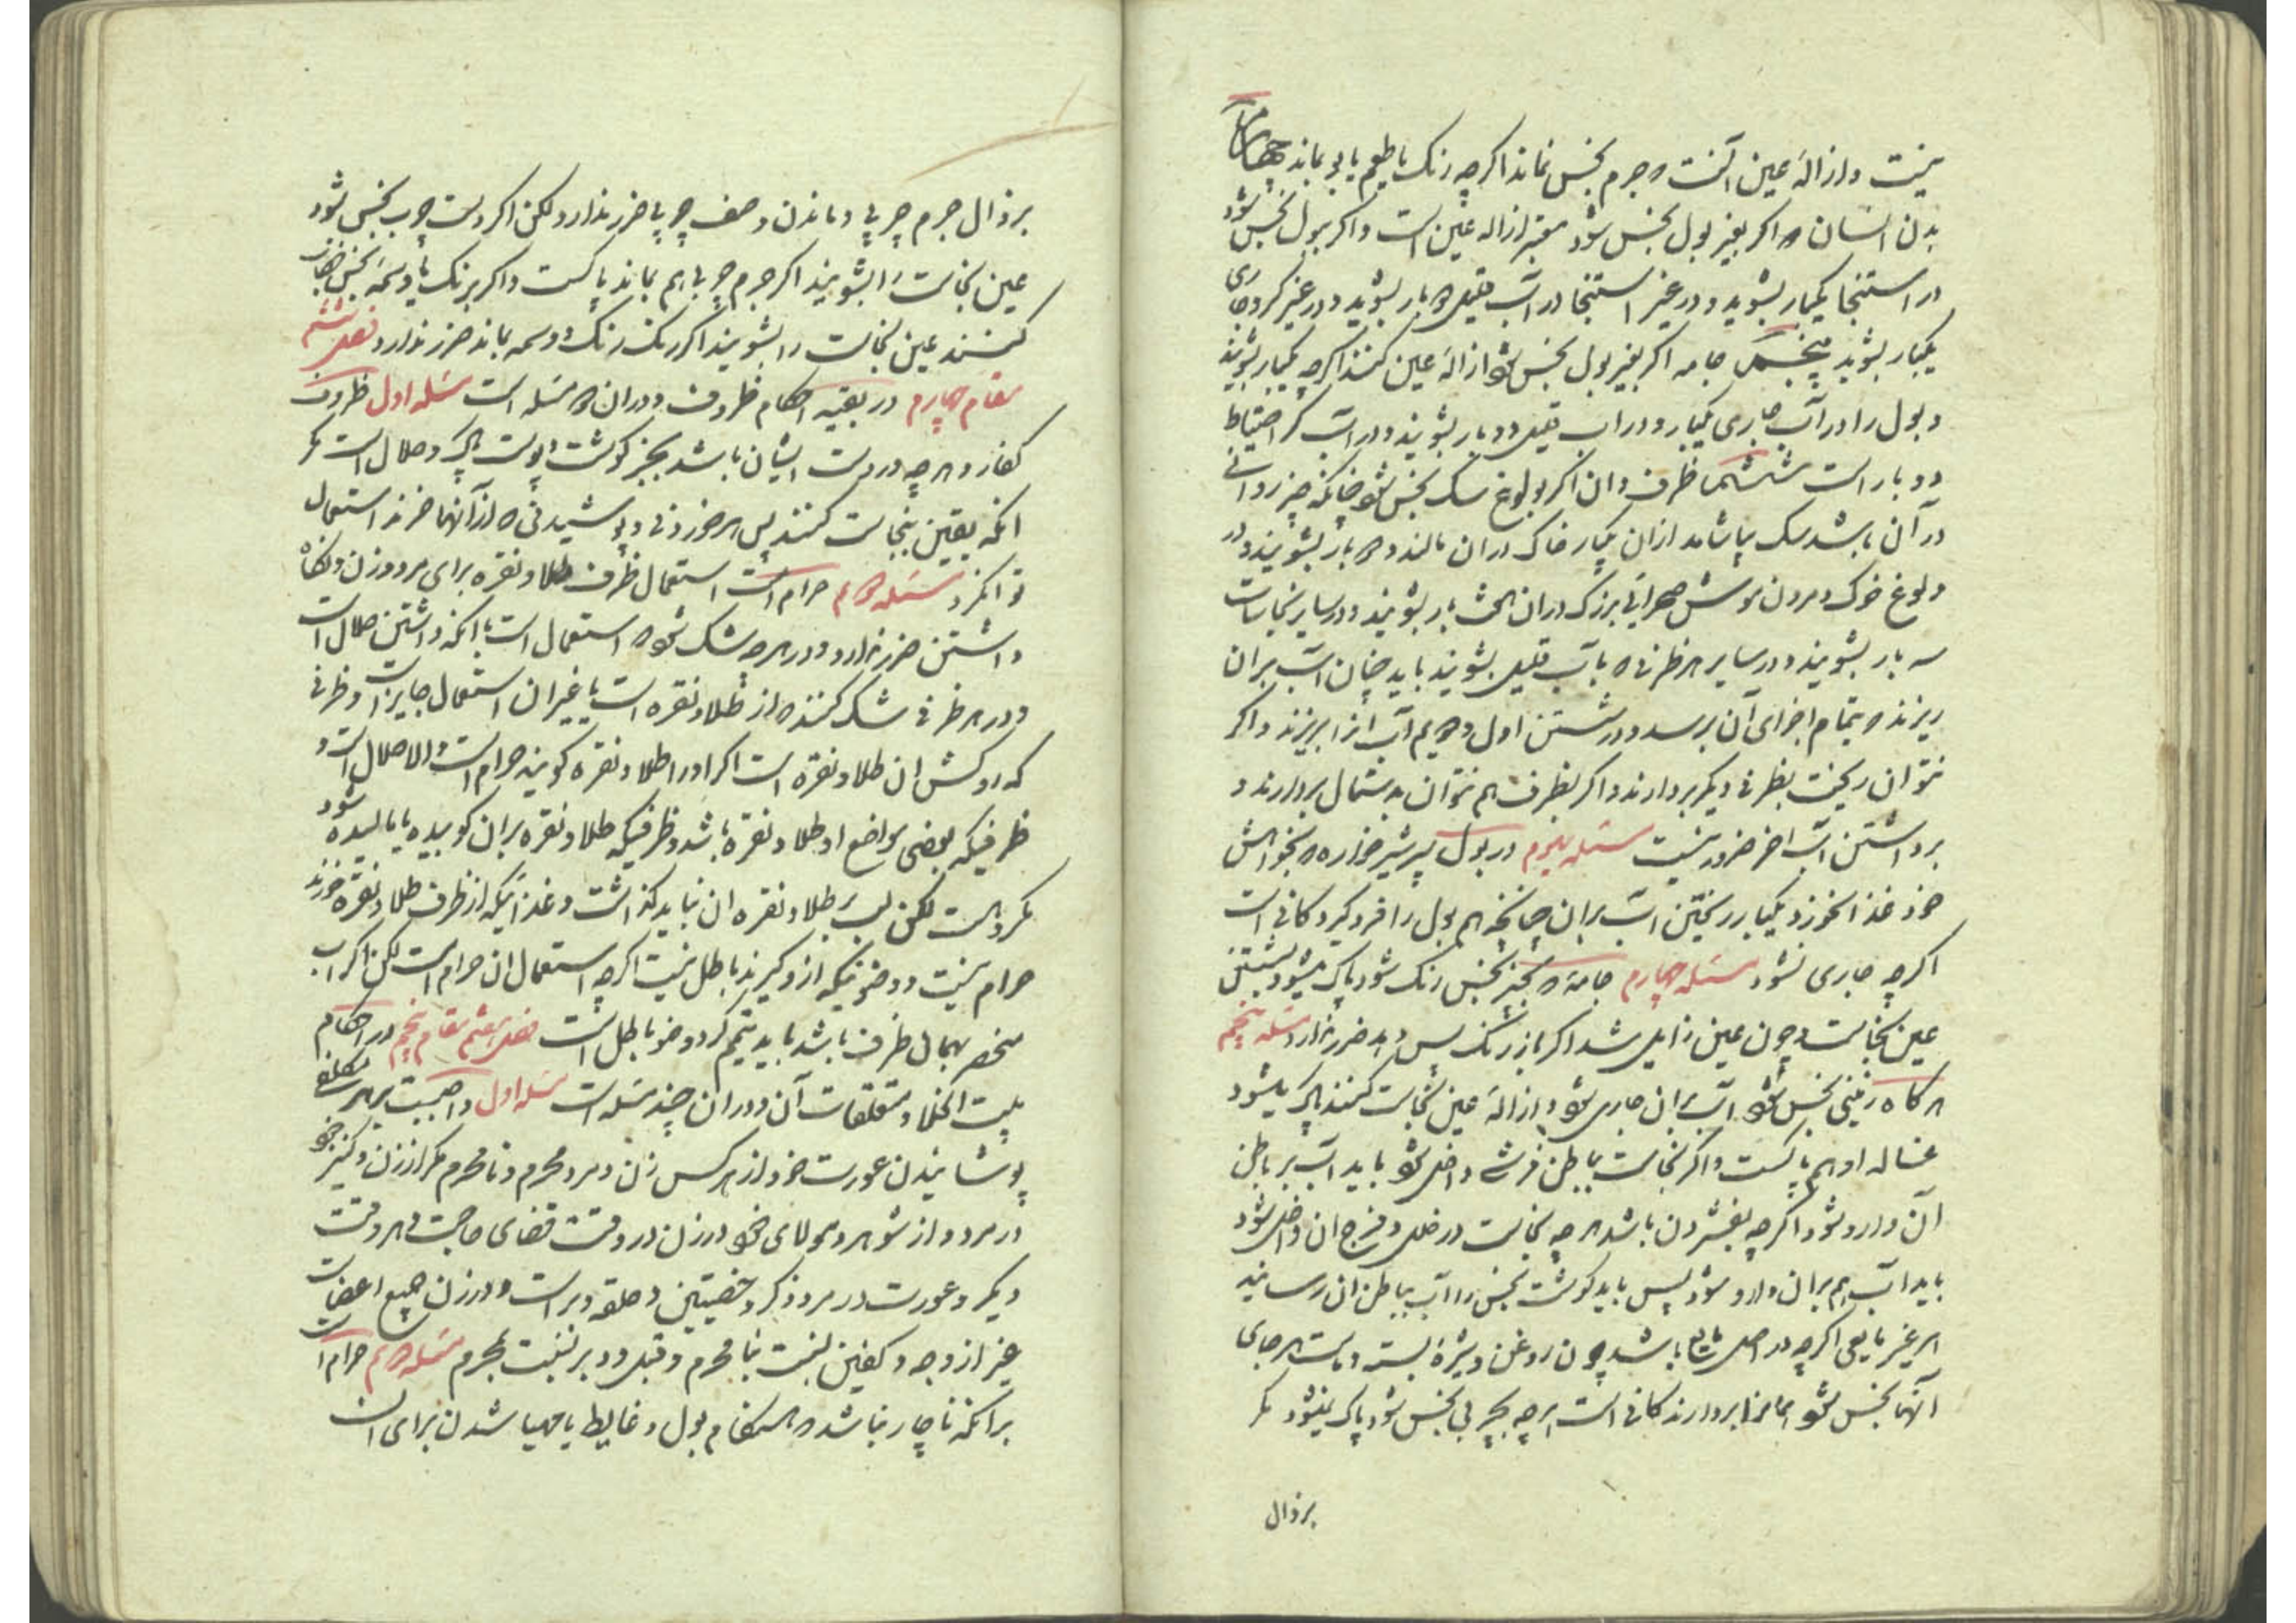 نیست و ازاله عین آنست که جرم نجس نماند اگرچه رنگ یا طعم یا بو بماند چهارم
بدن انسان که اگر بغیر بول نجس شود معتبر ازاله عین است و اگر ببول نجس شود
در استنجا یکبار بشوید و در غیر استنجا در آب قلیل دو بار بشوید و در غیر کر و جاری
یکبار بشوید پنجم جامه اگر بغیر بول نجس شود ازاله عین کنند اگرچه یکبار بشویند
و بول را در آب جاری یکبار و در آب قلیل دو بار بشویند و در آب کر احتیاط
دو بار است ششم ظرف و ان اگر بولوغ سک نجس شود چنانکه چیز روانی
در آن باشد سک بیاشامد ازان یکبار خاک دران مالند و دو بار بشویند و در
ولوغ خوک و مردن موش صحرائی بزرک دران هفت بار بشویند و در سایر نجاسات
سه بار بشویند و در سایر هر ظرفی که با آب قلیل بشویند باید چنان آب بران
ریزند که بتمام اجزای آن برسد و در شستن اول و دویم آب آنرا بریزند و اگر
نتوان ریخت بظرفی دیگر بردارند و اگر بظرف هم نتوان بدستمال بردارند و
برداشتن آب آخر ضرور نیست مسئله سیوم در بول پسر شیرخواره که بخواهش
خود غذا نخورد یکبار ریختن آب بران چنانچه هم بول را فرو گیرد کافی است
اگرچه جاری نشود مسئله چهارم جامه که بچیز نجس رنک شود پاک میشود بشستن
عین نجاست و چون عین زایل شد اگر باز رنک پس دهد ضرر ندارد مسئله پنجم
هرگاه زمینی نجس شود آب بران جاری شود و ازاله عین نجاست کنند پاک میشود
غساله او هم پاکست و اگر نجاست بباطن فرشی داخل شود باید آب بر باطن
آن وارد شود اگرچه بفشردن باشد هرچه نجاست در خلل و فرج ان داخل شود
باید آب هم بران وارد شود پس باید گوشت نجس را آب بباطن ان رسانید
هر غیر مایعی اگرچه در اصل مایع باشد چون روغن و شیره بسته و ماست هر جای
آنها نجس شود همانرا بردارند کافی است هرچه بچربی نجس شود پاک نمیشود مگر
بزوال
بزوال جرم چربی و ماندن وصف چربی ضرر ندارد ولکن اگر دست چرب نجس شود
عین نجاست را بشویند اگر جرم چربی هم بماند پاکست و اگر برنک یا وسمه نجس خضاب
کنند عین نجاست را بشویند اگر رنک رنک و وسمه بماند ضرر ندارد فصل ششم
مقام چهارم در بقیه احکام ظروف و دران دو مسئله است مسئله اول ظروف
کفار و هرچه در دست ایشان باشد بجز گوشت و پوست پاک و حلال است مگر
انکه یقین بنجاست کنند پس هر خوردنی و پوشیدنی که از آنها خرند استعمال
توانکرد مسئله دویم حرام است استعمال ظرف طلا و نقره برای مرد و زن و نکاه
داشتن ضرر ندارد و در هرچه شک شود که استعمال است یا انکه داشتن حلال است
و در هر ظرفی شک کنند که از طلا و نقره است یا غیر ان استعمال جایز است و ظرفی
که روکش ان طلا و نقره است اگر اورا طلا و نقره گویند حرام است و الا حلال است و
ظرفیکه بعضی مواضع او طلا و نقره باشد و ظرفیکه طلا و نقره بران کوبیده یا مالیده شود
مکروهست لکن لب بر طلا و نقره ان نباید گذاشت و غذائیکه از ظرف طلا و نقره خورند
حرام نیست و وضوئیکه ازو گیرند باطل نیست اگرچه استعمال ان حرام است لکن اگر آب
منحصر بهمان ظرف باشد باید تیمم کرد و وضو باطل است فصل ششم مقام پنجم در احکام
بیت الخلا و متعلقات آن و دران چند مسئله است مسئله اول واجبست بر هر مکلفی
پوشانیدن عورت خود از هر کس زن و مرد محرم و نامحرم مگر از زن و کنیز خود
در مرد و از شوهر و مولای خود در زن در وقت قضای حاجت و هر وقت
دیگر و عورت در مرد ذکر و خصیتین و حلقه دبر است و در زن جمیع اعضاست
غیر از وجه و کفین نسبت بنامحرم و قبل و دبر نسبت بمحرم مسئله دویم حرام است
برانکه ناچار نباشد که هنگام بول و غایط یا مهیا شدن برای ان